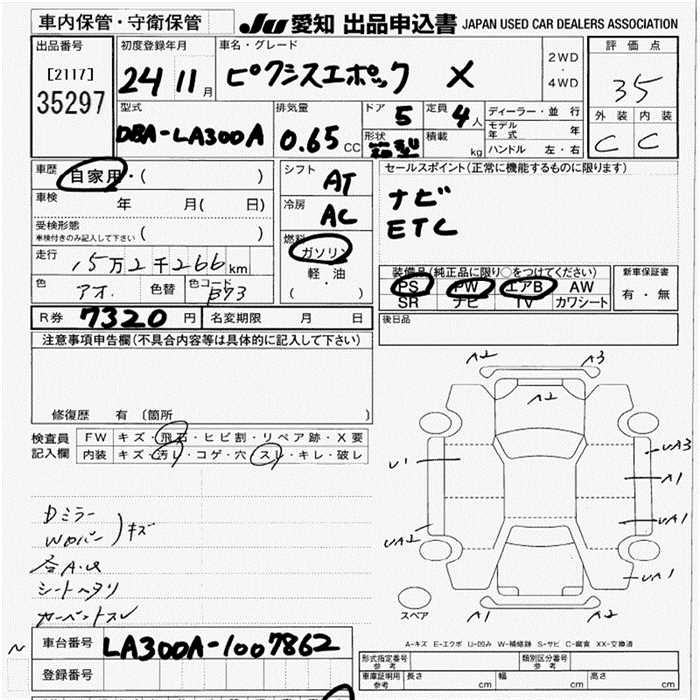 車内保管・守衛保管
JU 愛知 出品申込書 JAPAN USED CAR DEALERS ASSOCIATION
出品番号
[2117]
35297
初度登録年月
24 11月
車名・グレード
ピクシスエポック X
2WD
・
4WD
評価点
35
外装 内装
C C
型式
DBA-LA300A
排気量
0.65 CC
ドア 5
定員 4人
形状
積載 kg
ディーラー・並行
モデル年式 年
ハンドル 左・右
車歴
自家用・( )
車検 年 月( 日)
受検形態
車検付きのみ記入して下さい ( )
走行
15万2千266km
色 アオ.
色替
色コード B73
シフト AT
冷房 AC
燃料
ガソリン
軽・油
( )
セールスポイント(正常に機能するものに限ります)
ナビ
ETC
装備品(純正品に限り○をつけてください)
PS PW エアB AW
SR ナビ TV カワシート
新車保証書
有・無
R券 7320円
名変期限 月 日
後日品
注意事項申告欄(不具合内容等は具体的に記入して下さい)
修復歴 有 〔箇所 〕
検査員
記入欄
FW キズ・飛石・ヒビ割・リペア跡・X要
内装 キズ・汚レ・コゲ・穴・スレ・キレ・破レ
Dミラー
Wロバー
キズ
合A.U
シートヘタリ
カーペットスレ
A2 A3
A2
U1
UA3
A1
UA1
UA2
UA1
A1 A2
スペア
A-キズ E-エクボ U-凹み W-補修跡 S-サビ C-腐食 XX-交換済
N
車台番号 LA300A-1007862
登録番号
形式指定番号
参考
類別区分番号
参考
車庫証明用
参考
長さ cm
幅 cm
高さ cm